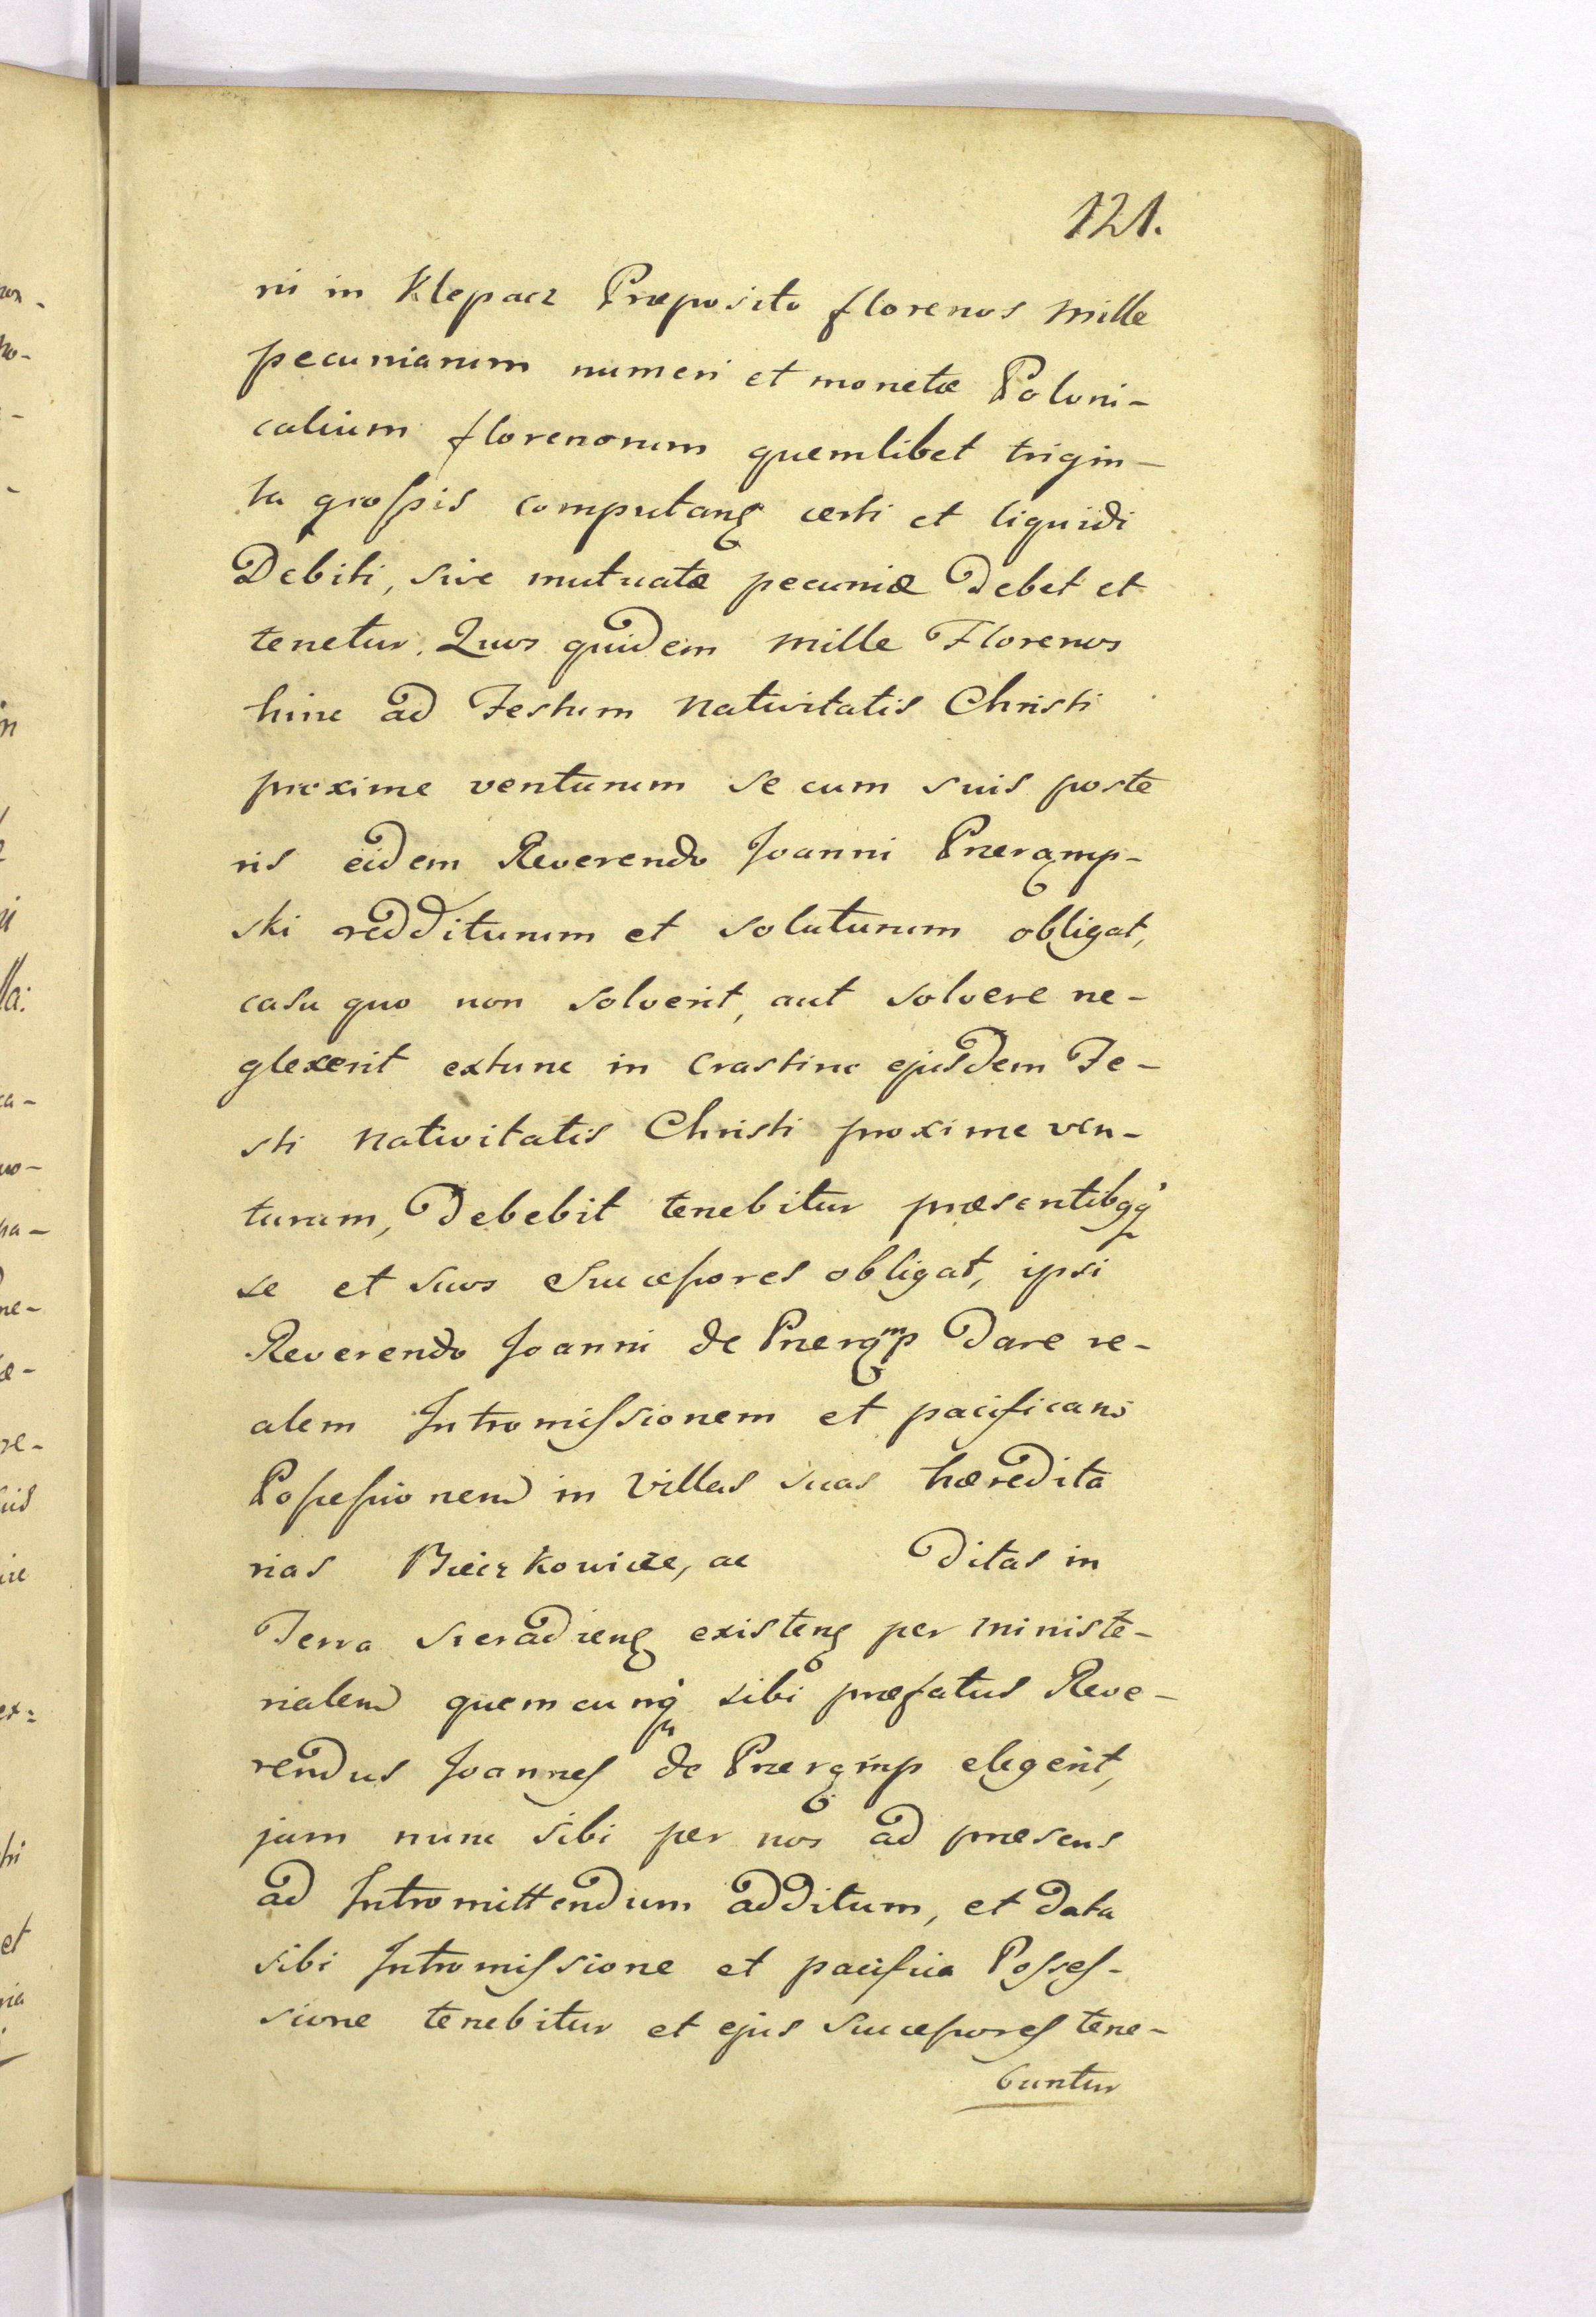 121.
ni in Klepacz Præposito florenos mille
pecuniarum numeri et monetæ Poloni-
calium florenorum quemlibet trigin-
ta grossis computanꝫ certi et liquidi
Debiti, sive mutuatæ pecuniæ Debet et
tenetur. Quos quidem mille Florenos
hinc ad Festum Nativitatis Christi
proxime venturum se cum suis poste
ris eidem Reverendo Joanni Przerąmp-
ski redditurum et soluturum obligat,
casu quo non solverit, aut solvere ne-
glexerit extunc in Crastino ejusdem Fe-
sti Nativitatis Christi proxime ven-
turum, Debebit tenebitur præsentibqꝫ
se et suos Successores obligat, ipsi
Reverendo Joanni de Przerąmp Dare re-
alem Intromissionem et pacificans
Possessionem in Villas suas hæredita
rias Bieczkowice, ac ditas in
Terra Sieradienꝫ existenꝫ per ministe-
rialem quemcunqꝫ sibi præfatus Reve-
rendus Joannes de Przerąmp elegerit,
jam nunc sibi per nos ad præsens
ad Intromittendum additum, et data
sibi Intromissione et pacifica Posses-
sione tenebitur et ejus Successores tene-
buntur